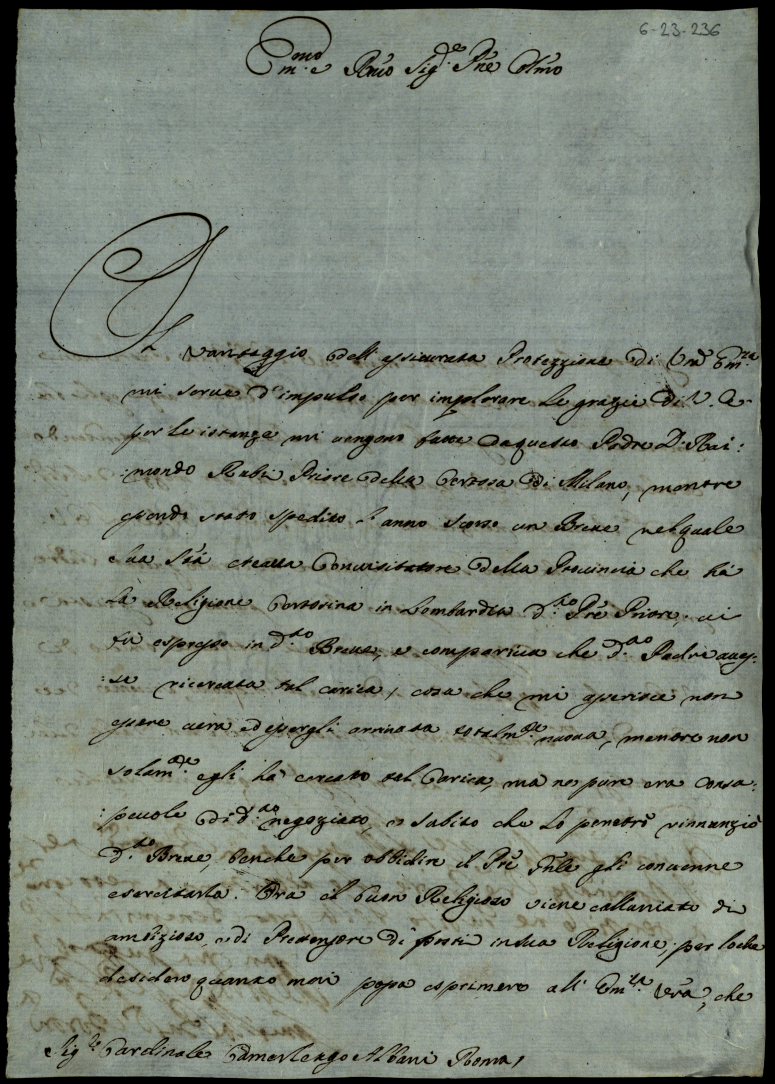 6-23-236
Em.mo e Rmo Sig.re Pne Colmo
Il vantaggio dell'essicurata Protezzione di Vra Em.za
mi serue d'impulso per implorare le grazie di V. E.
per le istanze mi vengono fatte da questo Padre D. Rai:
:mondo Rubi Priore della Certosa di Milano, mentre
essendo stato spedito l'anno scorso un Breue nel quale
sua Stà creaua Conuisitatore della Prouincia che hà
la Religione Certosina in Lombardia d.to Pre Priore, ui
fù espresso in d.to Breue, e compariua che d.to Padre aues:
:se ricercata tal carica, cosa che mi asserisce non
essere uera ed essergli arriuata totalm.te nuoua, mentre non
solam.te egli hà cercato tal Carica, ma ne pure era consa:
:peuole di d.to negoziato, e subito che lo penetrò rinunziò
d.to Breue, benche per obbidire il Pre Gnle gli conuenne
esercitarla. Ora il buon Religioso viene calluniato di
ambizioso, e di Pretensore di posti in sua Religione; per loche
desidero quanto mai possa esprimere all' Em.za Vra, che
Sig.re Cardinale Camerlengo Albani Roma,